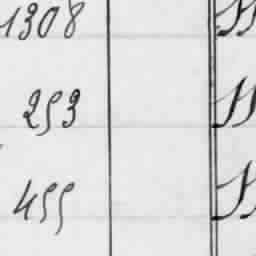 1308 H
253 H
455 H